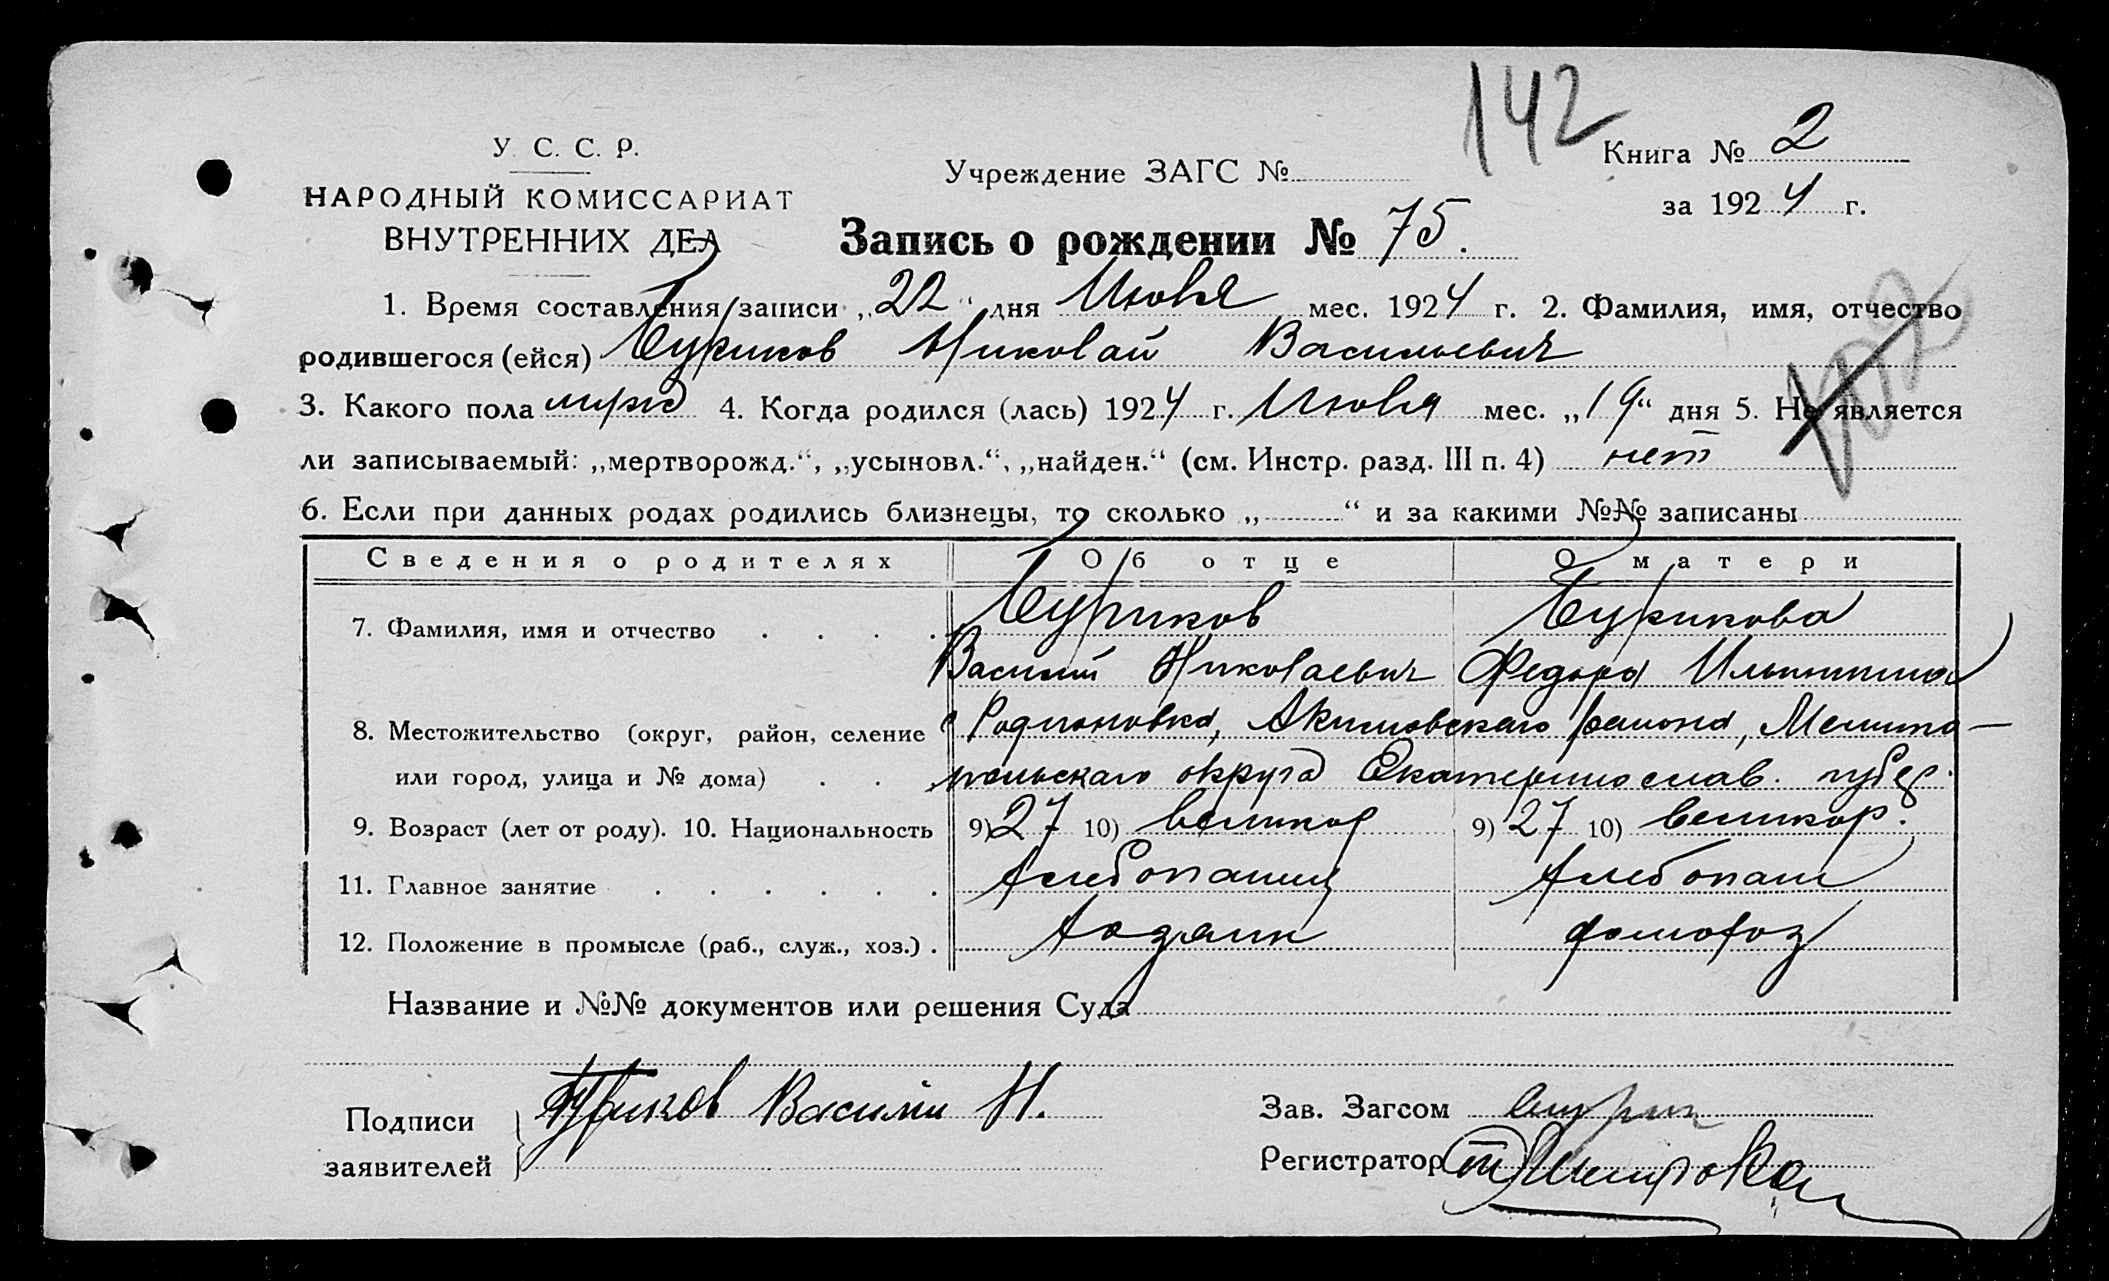 142
У. С. С. Р.
Книга № 2
Учреждение ЗАГС №
НАРОДНЫЙ КОМИССАРИАТ
за 1924 г.
ВНУТРЕННИХ ДЕЛ
Запись о рождении № 75.
1. Время составления записи „22“ дня Июля мес. 1924 г. 2. Фамилия, имя, отчество
родившегося (ейся) Буриков Николай Васильевич
3. Какого пола муж 4. Когда родился (лась) 1924 г. Июля мес. „19“ дня 5. Не является
ли записываемый: „мертворожд.“, „усыновл.“, „найден.“ (см. Инстр. разд. III п. 4) нет
6. Если при данных родах родились близнецы, то сколько „ “ и за какими №№ записаны
Сведения о родителях Об отце О матери
7. Фамилия, имя и отчество Буриков Бурикова
Василий Николаевич Федора
8. Местожительство (округ, район, селение с Родионовка, Акимовскаго района, Мелито-
или город, улица и № дома) польскаго округа Екатеринослав. губер.
9. Возраст (лет от роду). 10. Национальность 9) 27 10) великор 9) 27 10) великор.
11. Главное занятие Хлебопашец Хлебопаш
12. Положение в промысле (раб., служ., хоз.) Хозяин домохоз
Название и №№ документов или решения Суда
Подписи Буриков Василий Н.
заявителей
Зав. Загсом
Регистратор